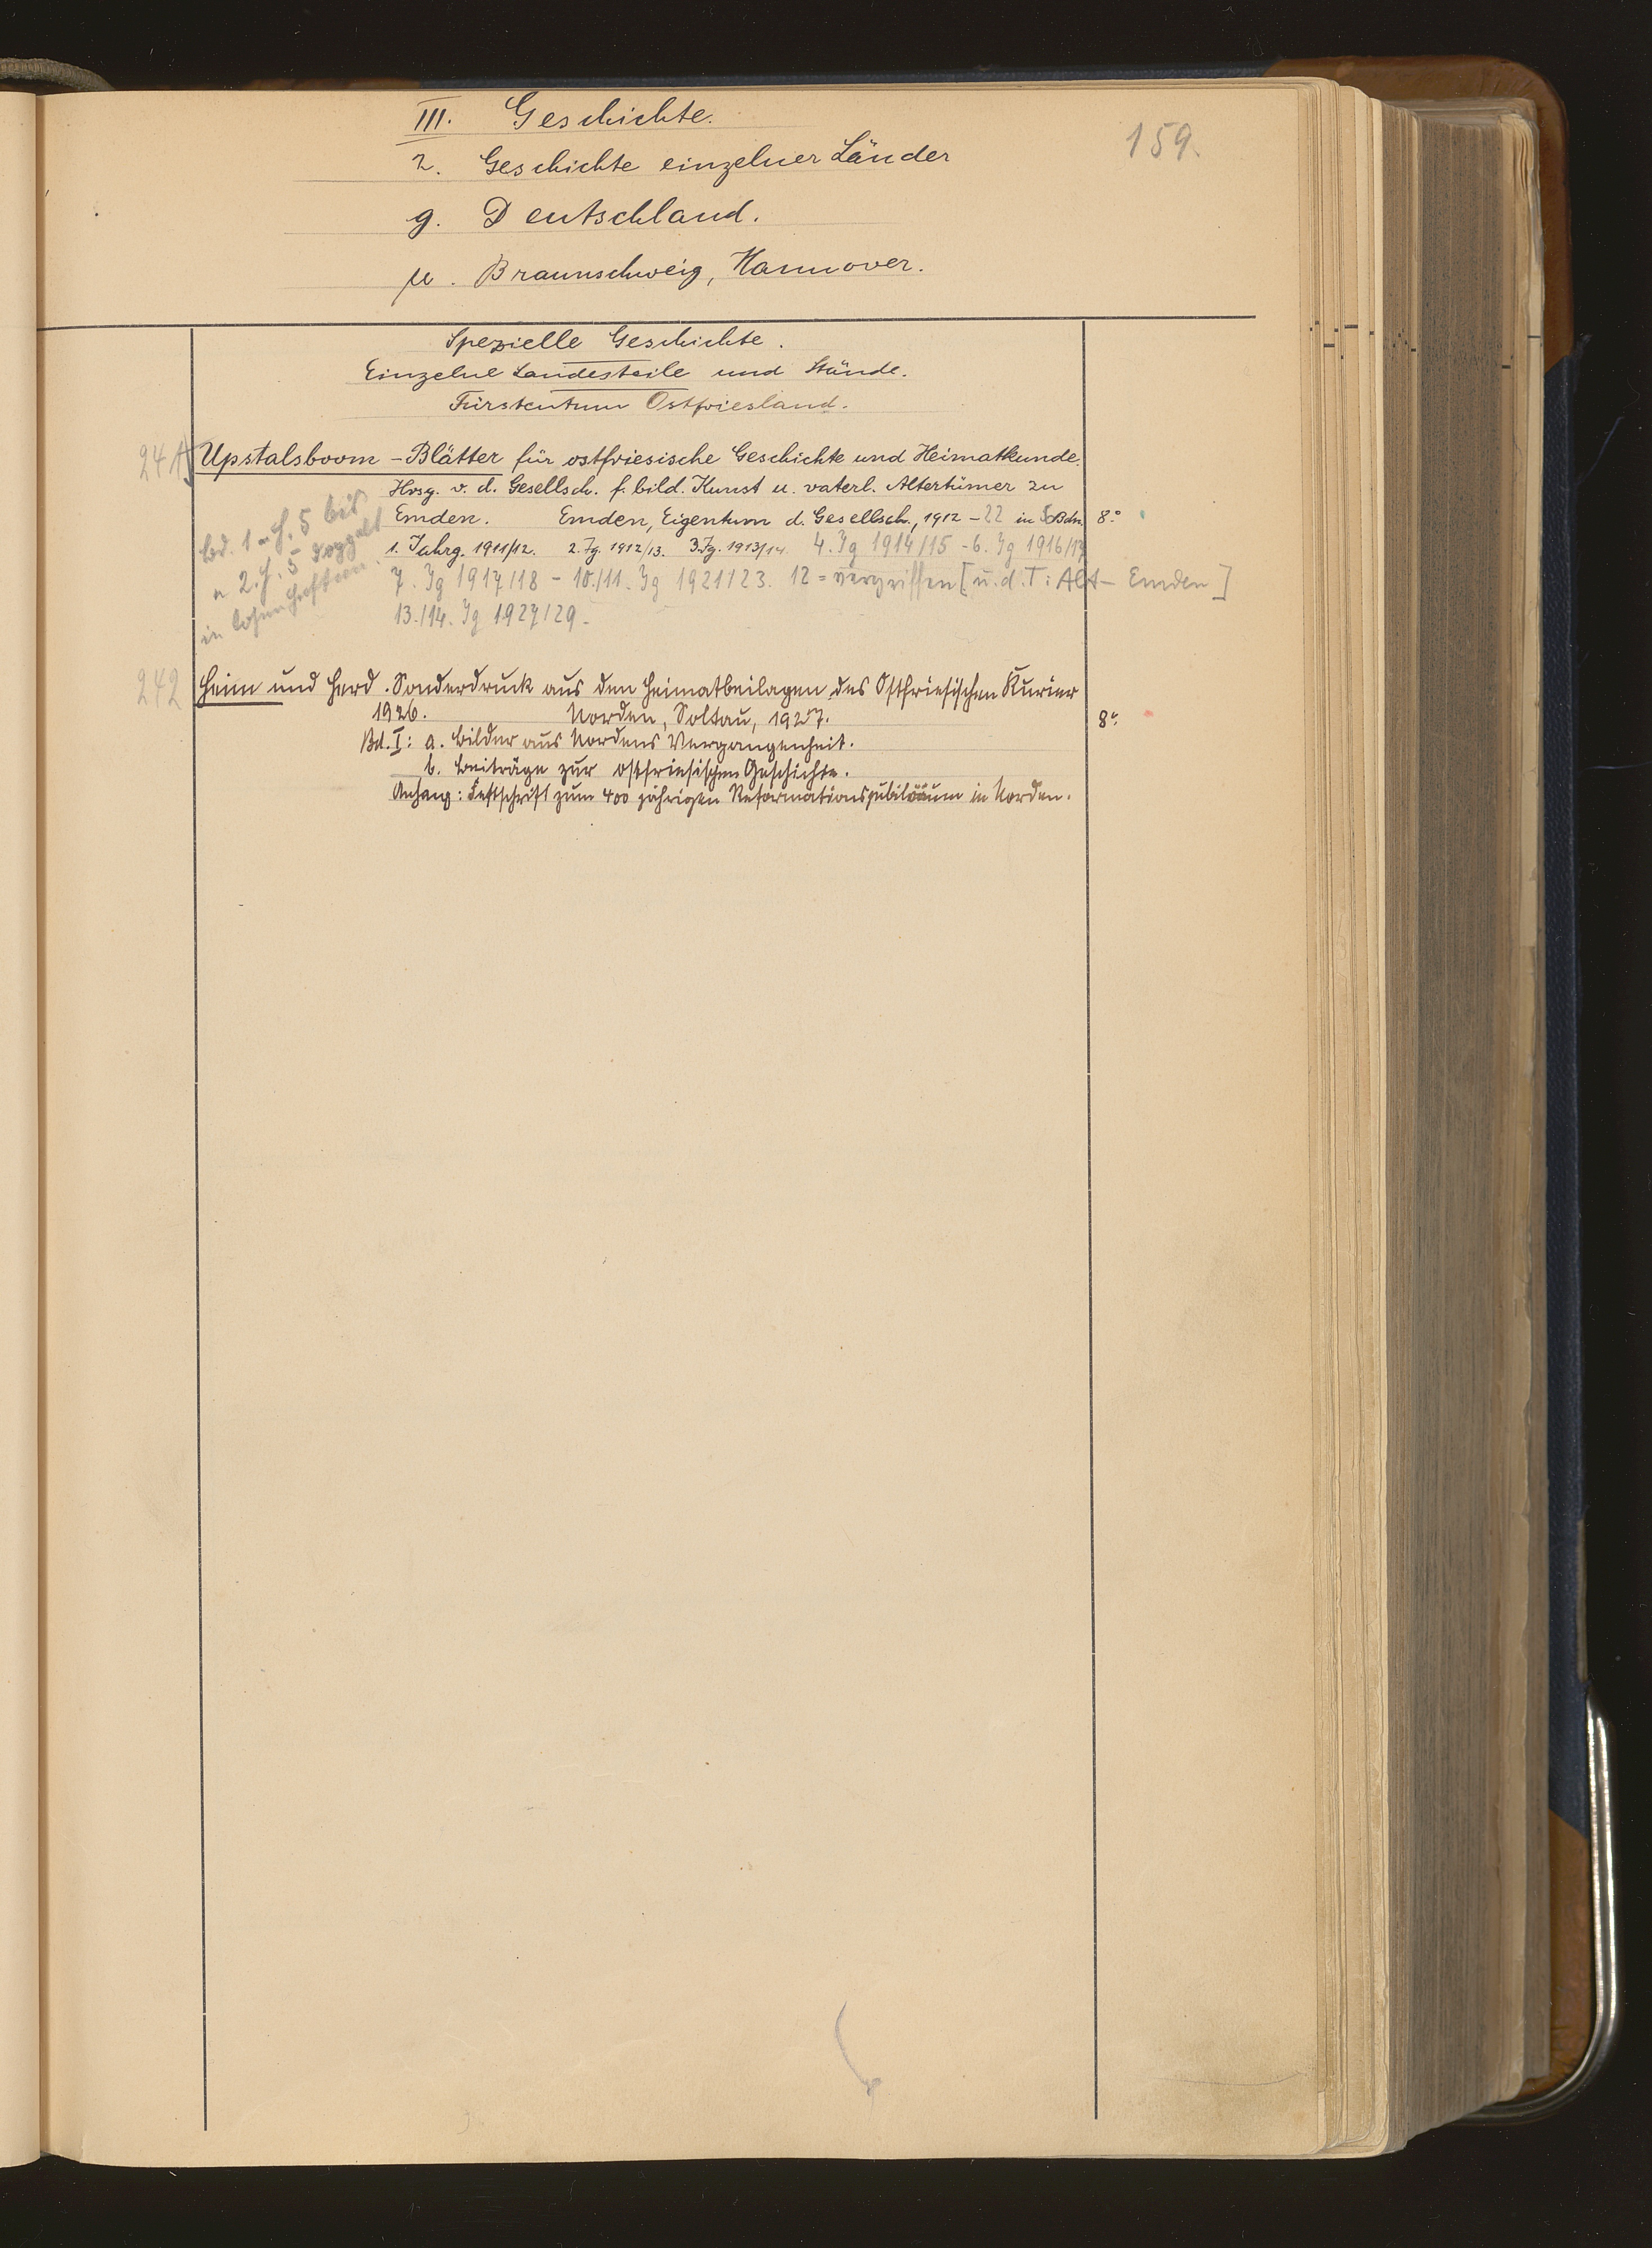 III. Geschichte.
159.
2. Geschichte einzelner Länder
g. Deutschland.
µ. Braunschweig, Hannover.
Spezielle Geschichte.
Einzelne Landesteile und Stände.
Fürstentum Ostfriesland.
241 Upstalsboom-Blätter für ostfriesische Geschichte und Heimatkunde.
Hrsg. v. d. Gesellsch. f. bild. Kunst u. vaterl. Altertümer zu
Emden. Emden, Eigentum d. Gesellsch., 1912-22 in Bdn. 8°
1. Jahrg. 1911/12. 2. Jg. 1912/13. 3. Jg. 1913/14. 4. Jg 1914/15 - 6. Jg 1916/17
7. Jg 1917/18 - 10./11. Jg 1921/23. 12 = vergriffen [u. d. T: Alt-Emden]
13./14. Jg 1927/29.
Bd. 1 - H. 5 bis
" 2. H. 5 - doppelt
in losen Heften.
242 Heim und Herd. Sonderdruck aus den Heimatbeilagen des Ostfriesischen Kurier
1926. Norden, Soltau, 1927. 8°.
Bd. I: a. Bilder aus Nordens Vergangenheit.
b. Beiträge zur ostfriesischen Geschichte.
Anhang: Festschrift zum 400 jährigen Reformationsjubiläum in Norden.